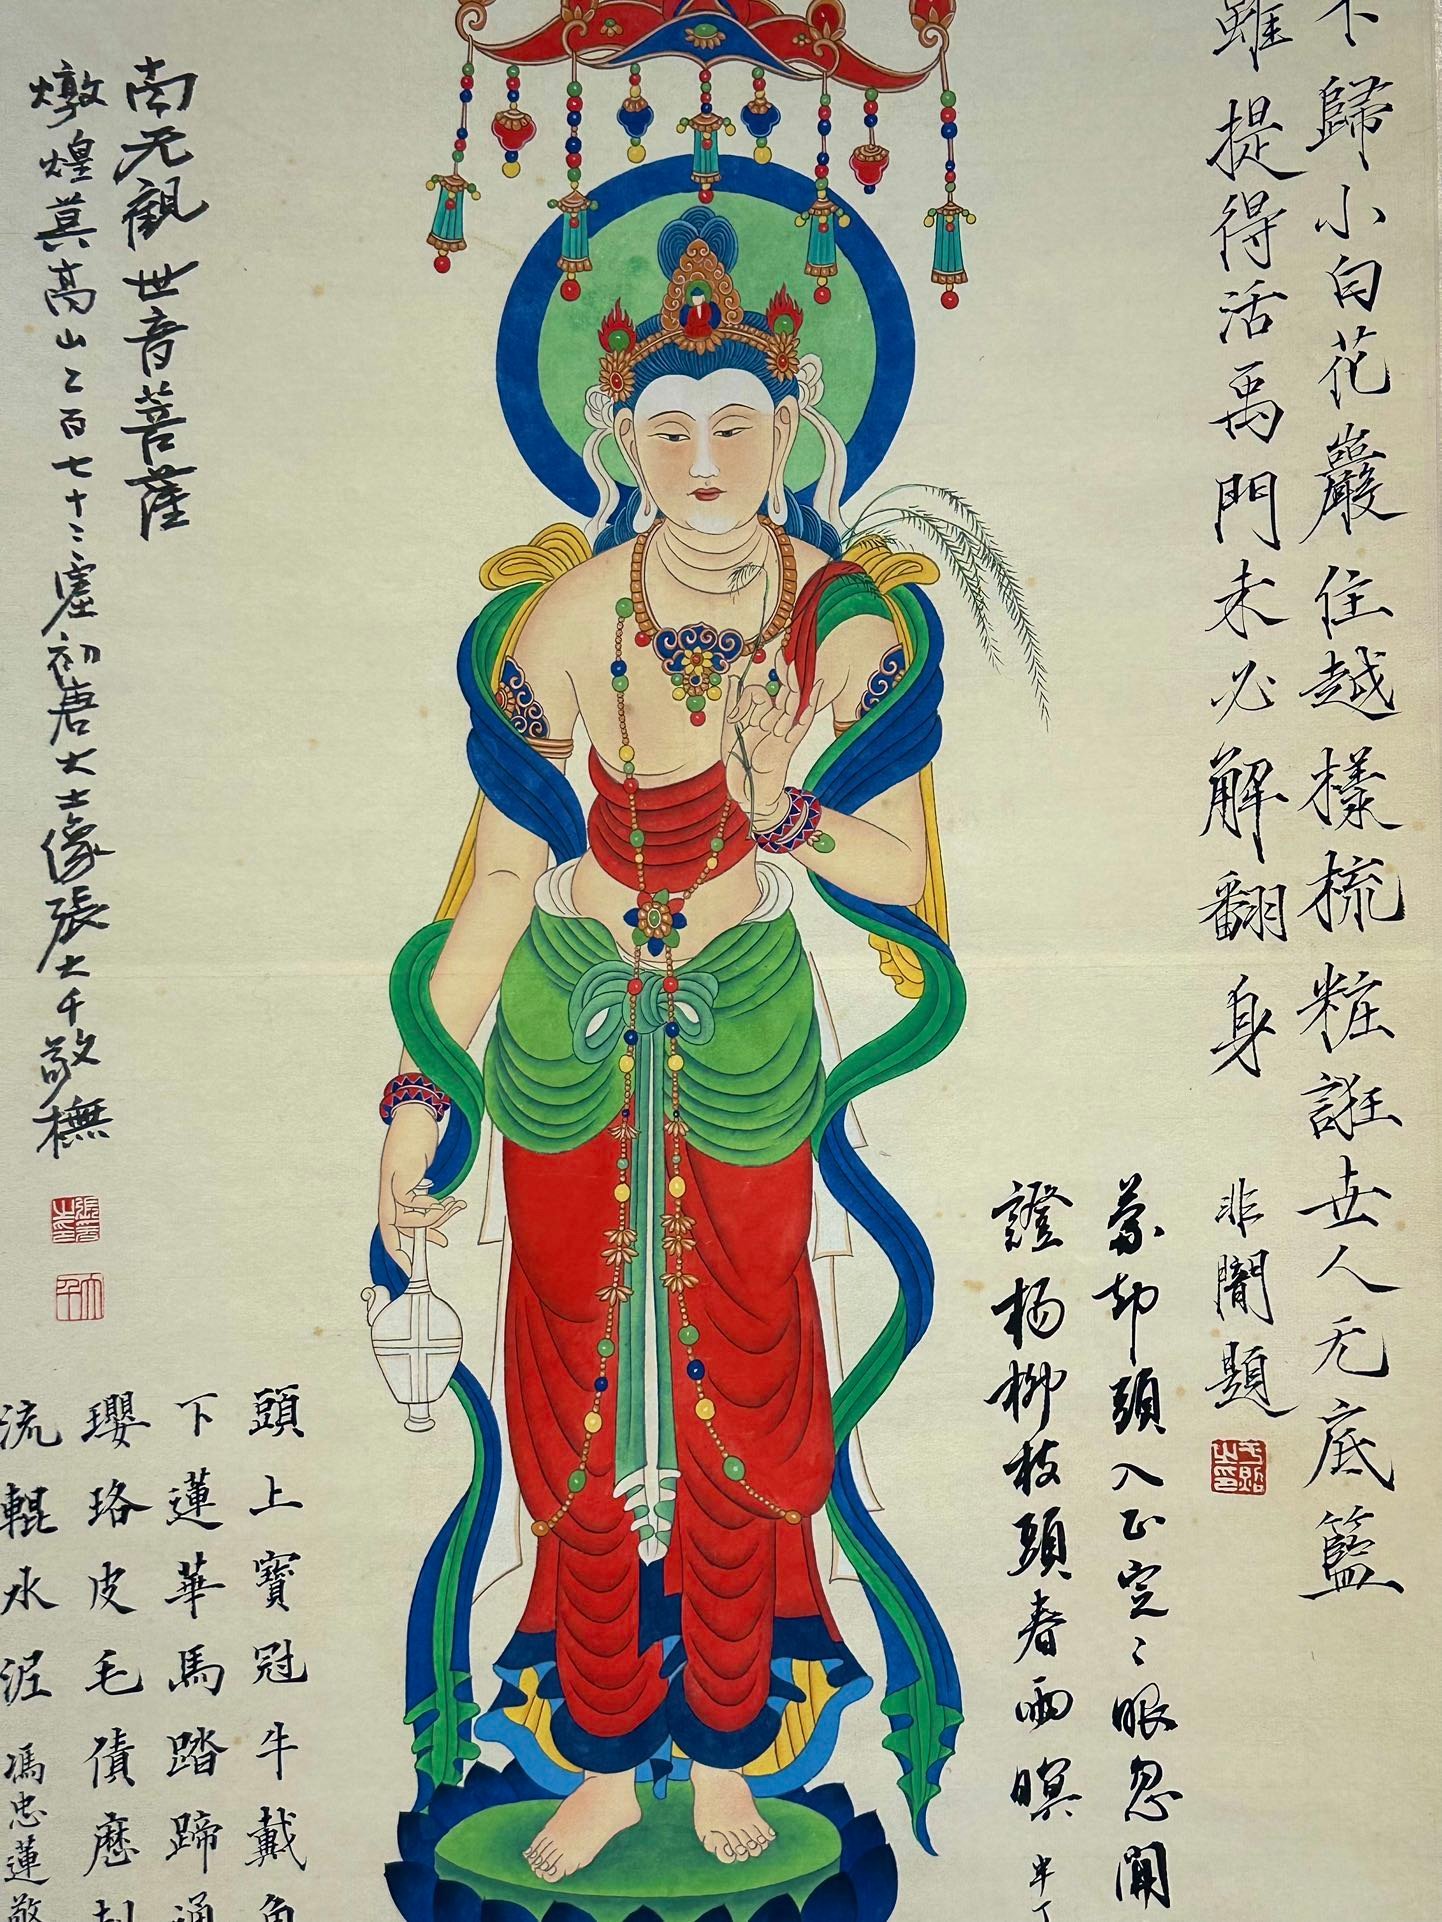 歸小白花巖住越樣梳粧誑世人无底籃
雖提得活禹門未必解翻身
非闇題
于照之印
却頭入正定〻眼忽開
證楊柳枝頭春雨暝 半丁
南无觀世音菩薩
燉煌莫高山二百七十二窟初唐大士像張大千敬橅
張爰之印
大千
頭上寶冠牛戴角
下蓮華馬踏蹄通
瓔珞皮毛債歷劫
流輥水 馮忠蓮敬